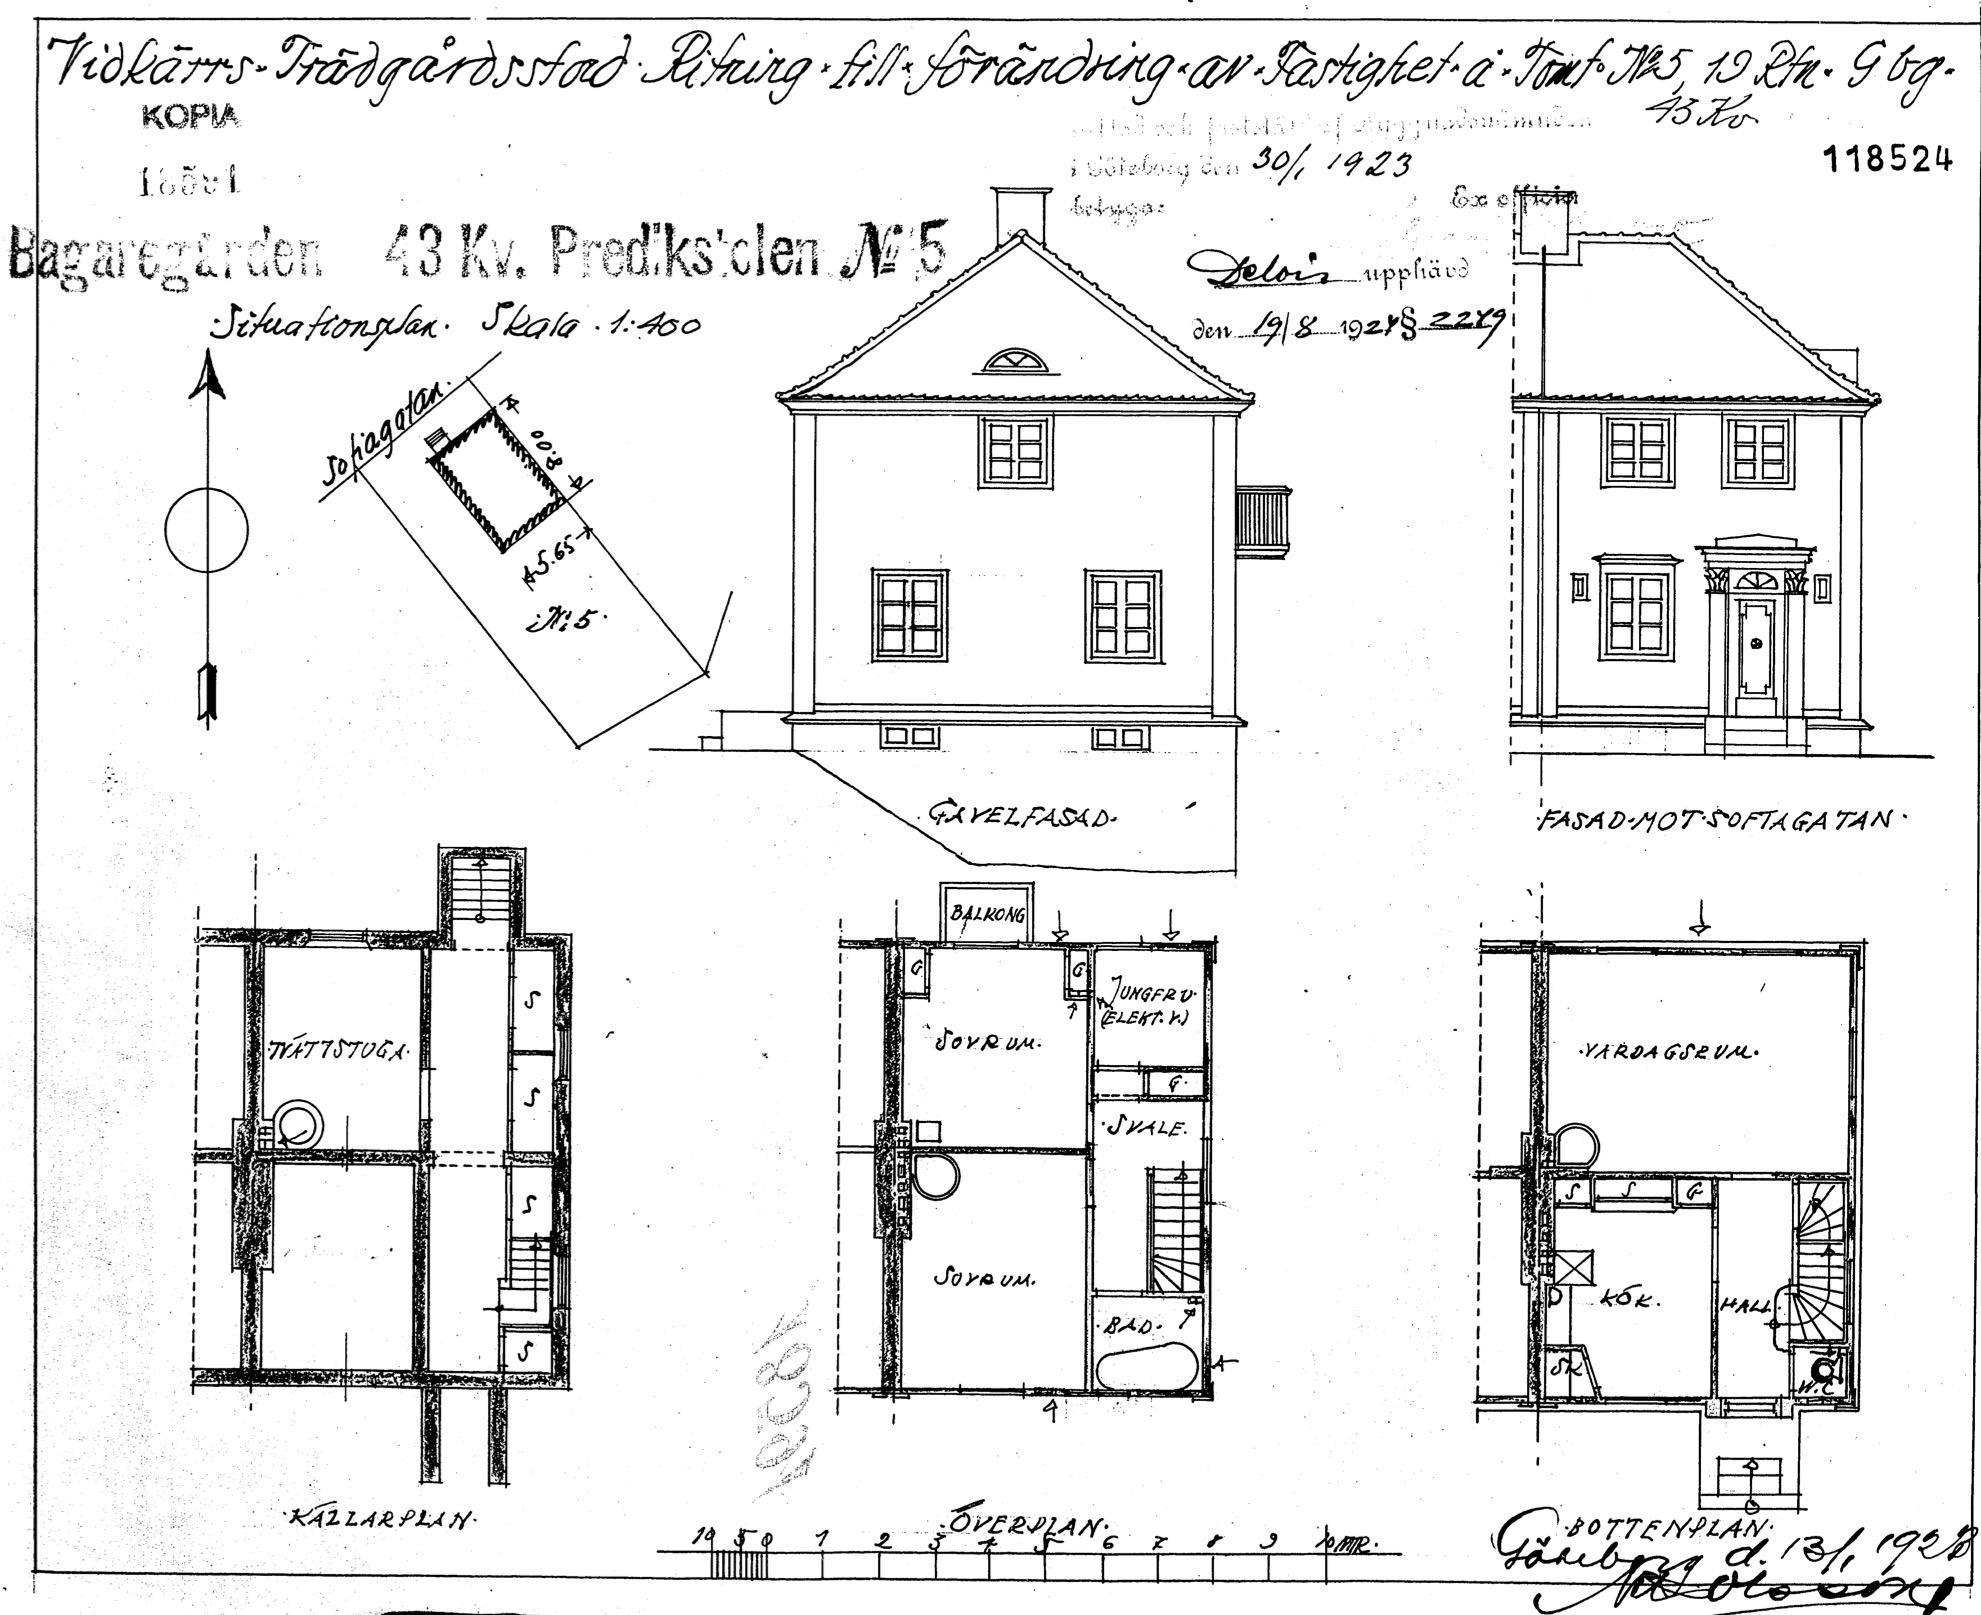 Vidkärrs·Trädgårdsstad·Ritning·till·förändring·av·Fastighet·å·Tomt·№5, 19 Rtn. Gbg.
43 Kv.
KOPIA
i Göteborg den 30/1 1923
betygar
Ex officio
118524
Bagaregården 43 Kv. Predikstolen № 5
Delvis upphävd
den 19/8 1924 § 2279
·Situationsplan. Skala. 1:400
Sofiagatan.
8.00
5.65
№ 5.
·GAVELFASAD·
·FASAD·MOT·SOFIAGATAN·
TVÄTTSTUGA.
S
S
S
S
·KÄLLARPLAN·
BALKONG
G
G
JUNGFRU.
(ELEKT.V.)
SOVRUM.
G.
·SVALE.
SOVRUM.
·BAD.
·ÖVERPLAN.
·VARDAGSRUM.
S
S
G
KÖK.
HALL.
SK
W.C
·BOTTENPLAN.
10 5 0 1 2 3 4 5 6 7 8 9 10 MTR.
Göteborg d. 13/1 1923